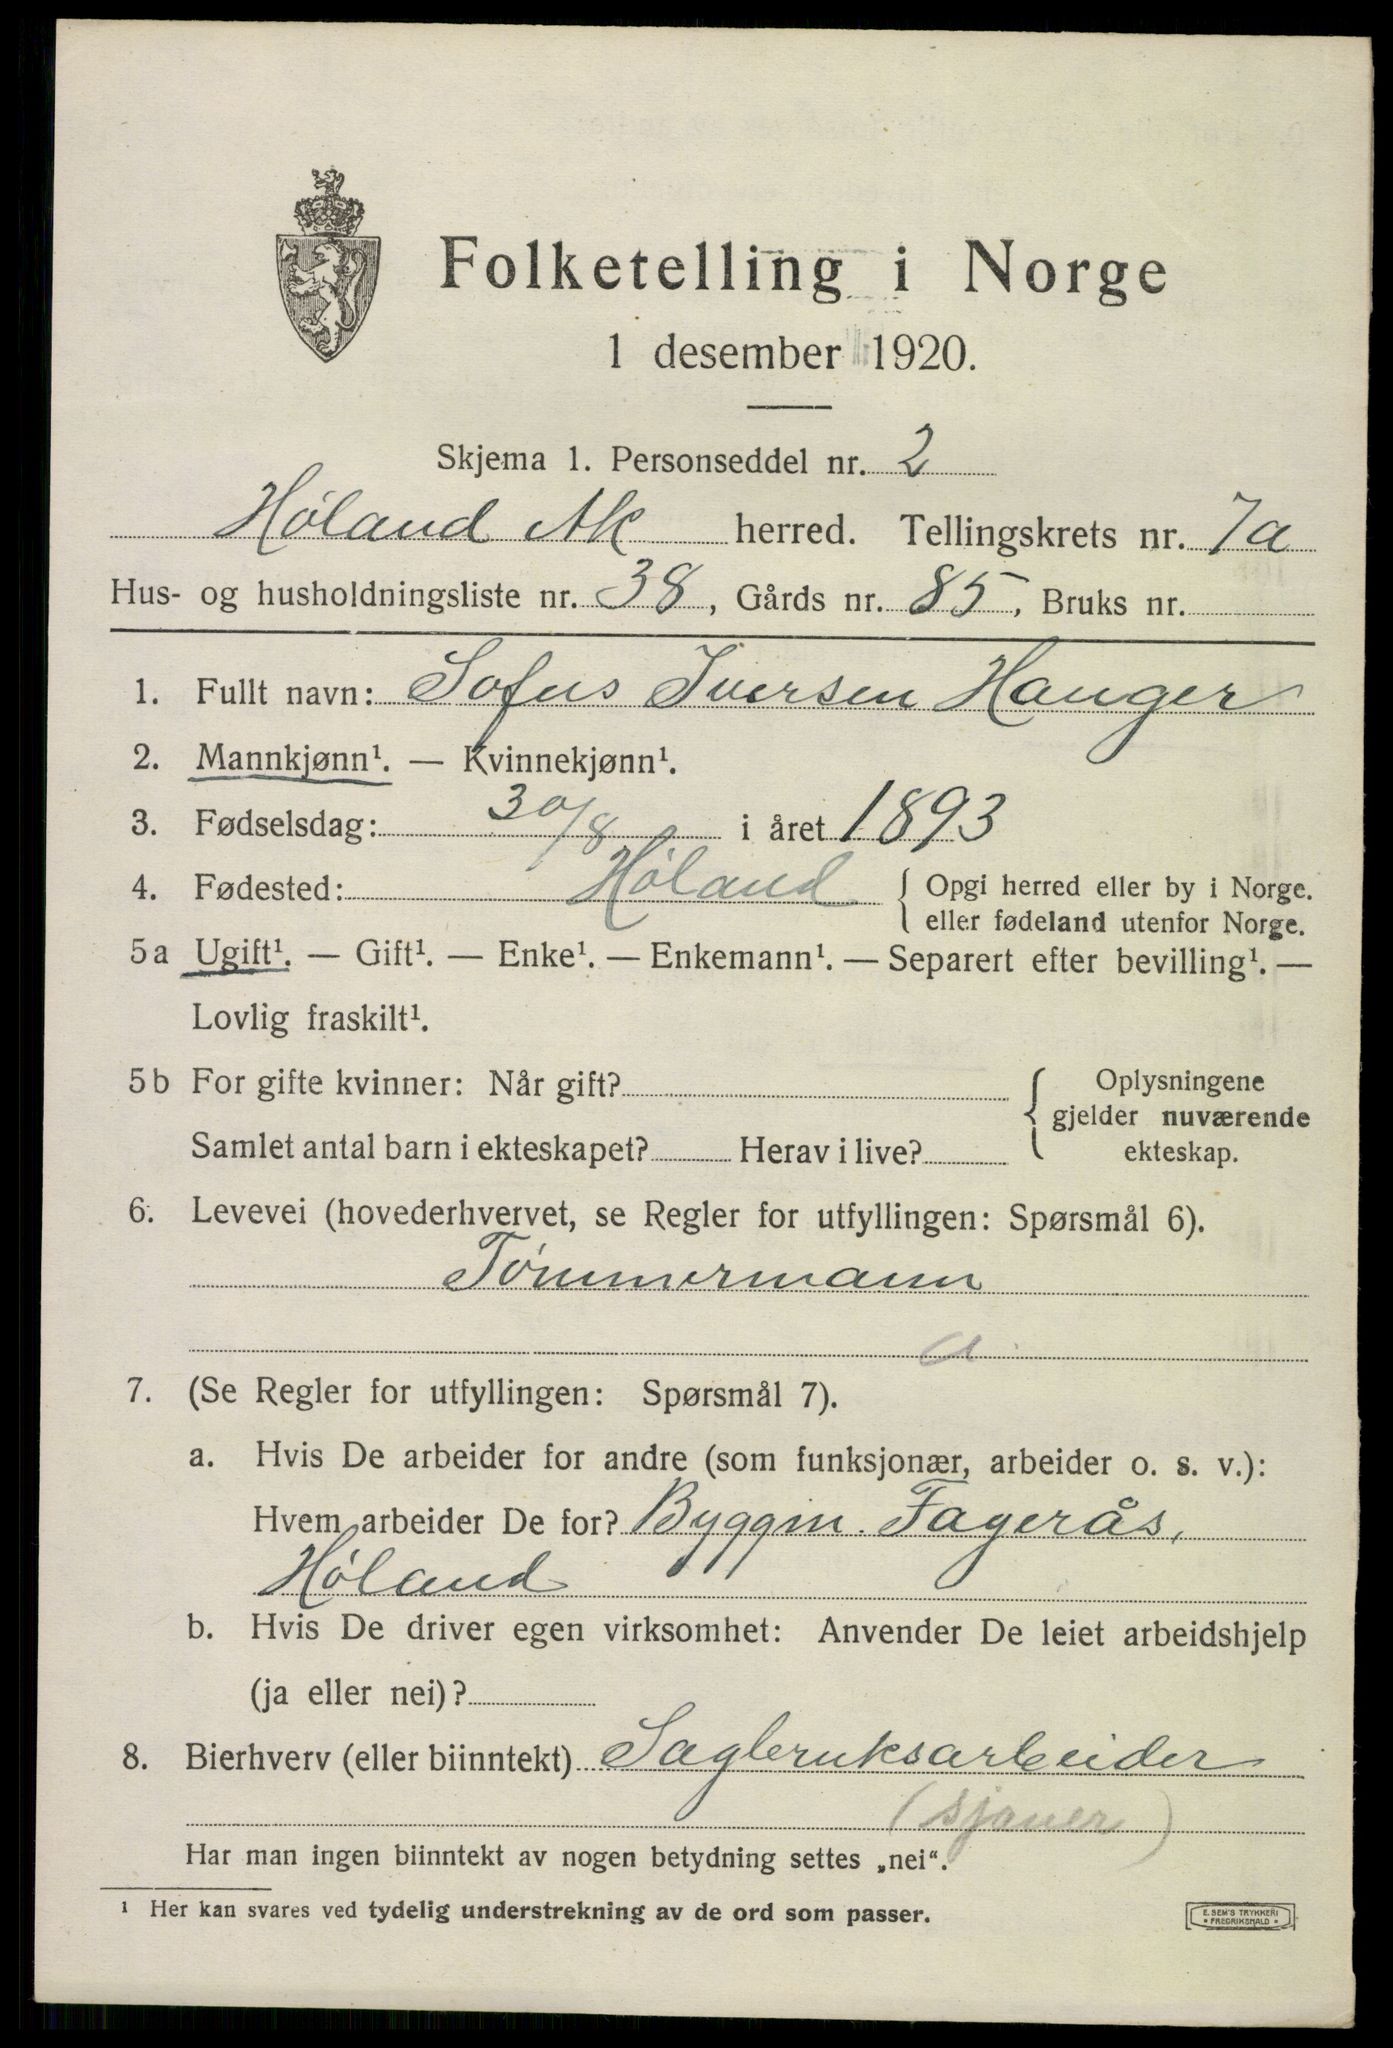 Folketelling i Norge
1 desember 1920.
Skjema 1. Personseddel nr. 2
Høland Ak herred. Tellingskrets nr. 7a
Hus- og husholdningsliste nr. 38, Gårds nr. 85, Bruks nr.
1. Fullt navn: Sofus Iversen Hauger
2. Mannkjønn¹. — Kvinnekjønn¹.
3. Fødselsdag: 30/8 i året 1893
4. Fødested: Høland { Opgi herred eller by i Norge.
eller fødeland utenfor Norge.
5a Ugift¹. — Gift¹. — Enke¹. — Enkemann¹. — Separert efter bevilling¹. —
Lovlig fraskilt¹.
5b For gifte kvinner: Når gift? { Oplysningene
gjelder nuværende
Samlet antal barn i ekteskapet? Herav i live? ekteskap.
6. Levevei (hovederhvervet, se Regler for utfyllingen: Spørsmål 6).
Tømmermann
a.
7. (Se Regler for utfyllingen: Spørsmål 7).
a. Hvis De arbeider for andre (som funksjonær, arbeider o. s. v.):
Hvem arbeider De for? Byggm. Fagerås,
Høland
b. Hvis De driver egen virksomhet: Anvender De leiet arbeidshjelp
(ja eller nei)?
8. Bierhverv (eller biinntekt) Sagbruksarbeider
(sjauer)
Har man ingen biinntekt av nogen betydning settes „nei“.
¹ Her kan svares ved tydelig understrekning av de ord som passer.
E. SEM'S TRYKKERI
• FREDRIKSHALD •